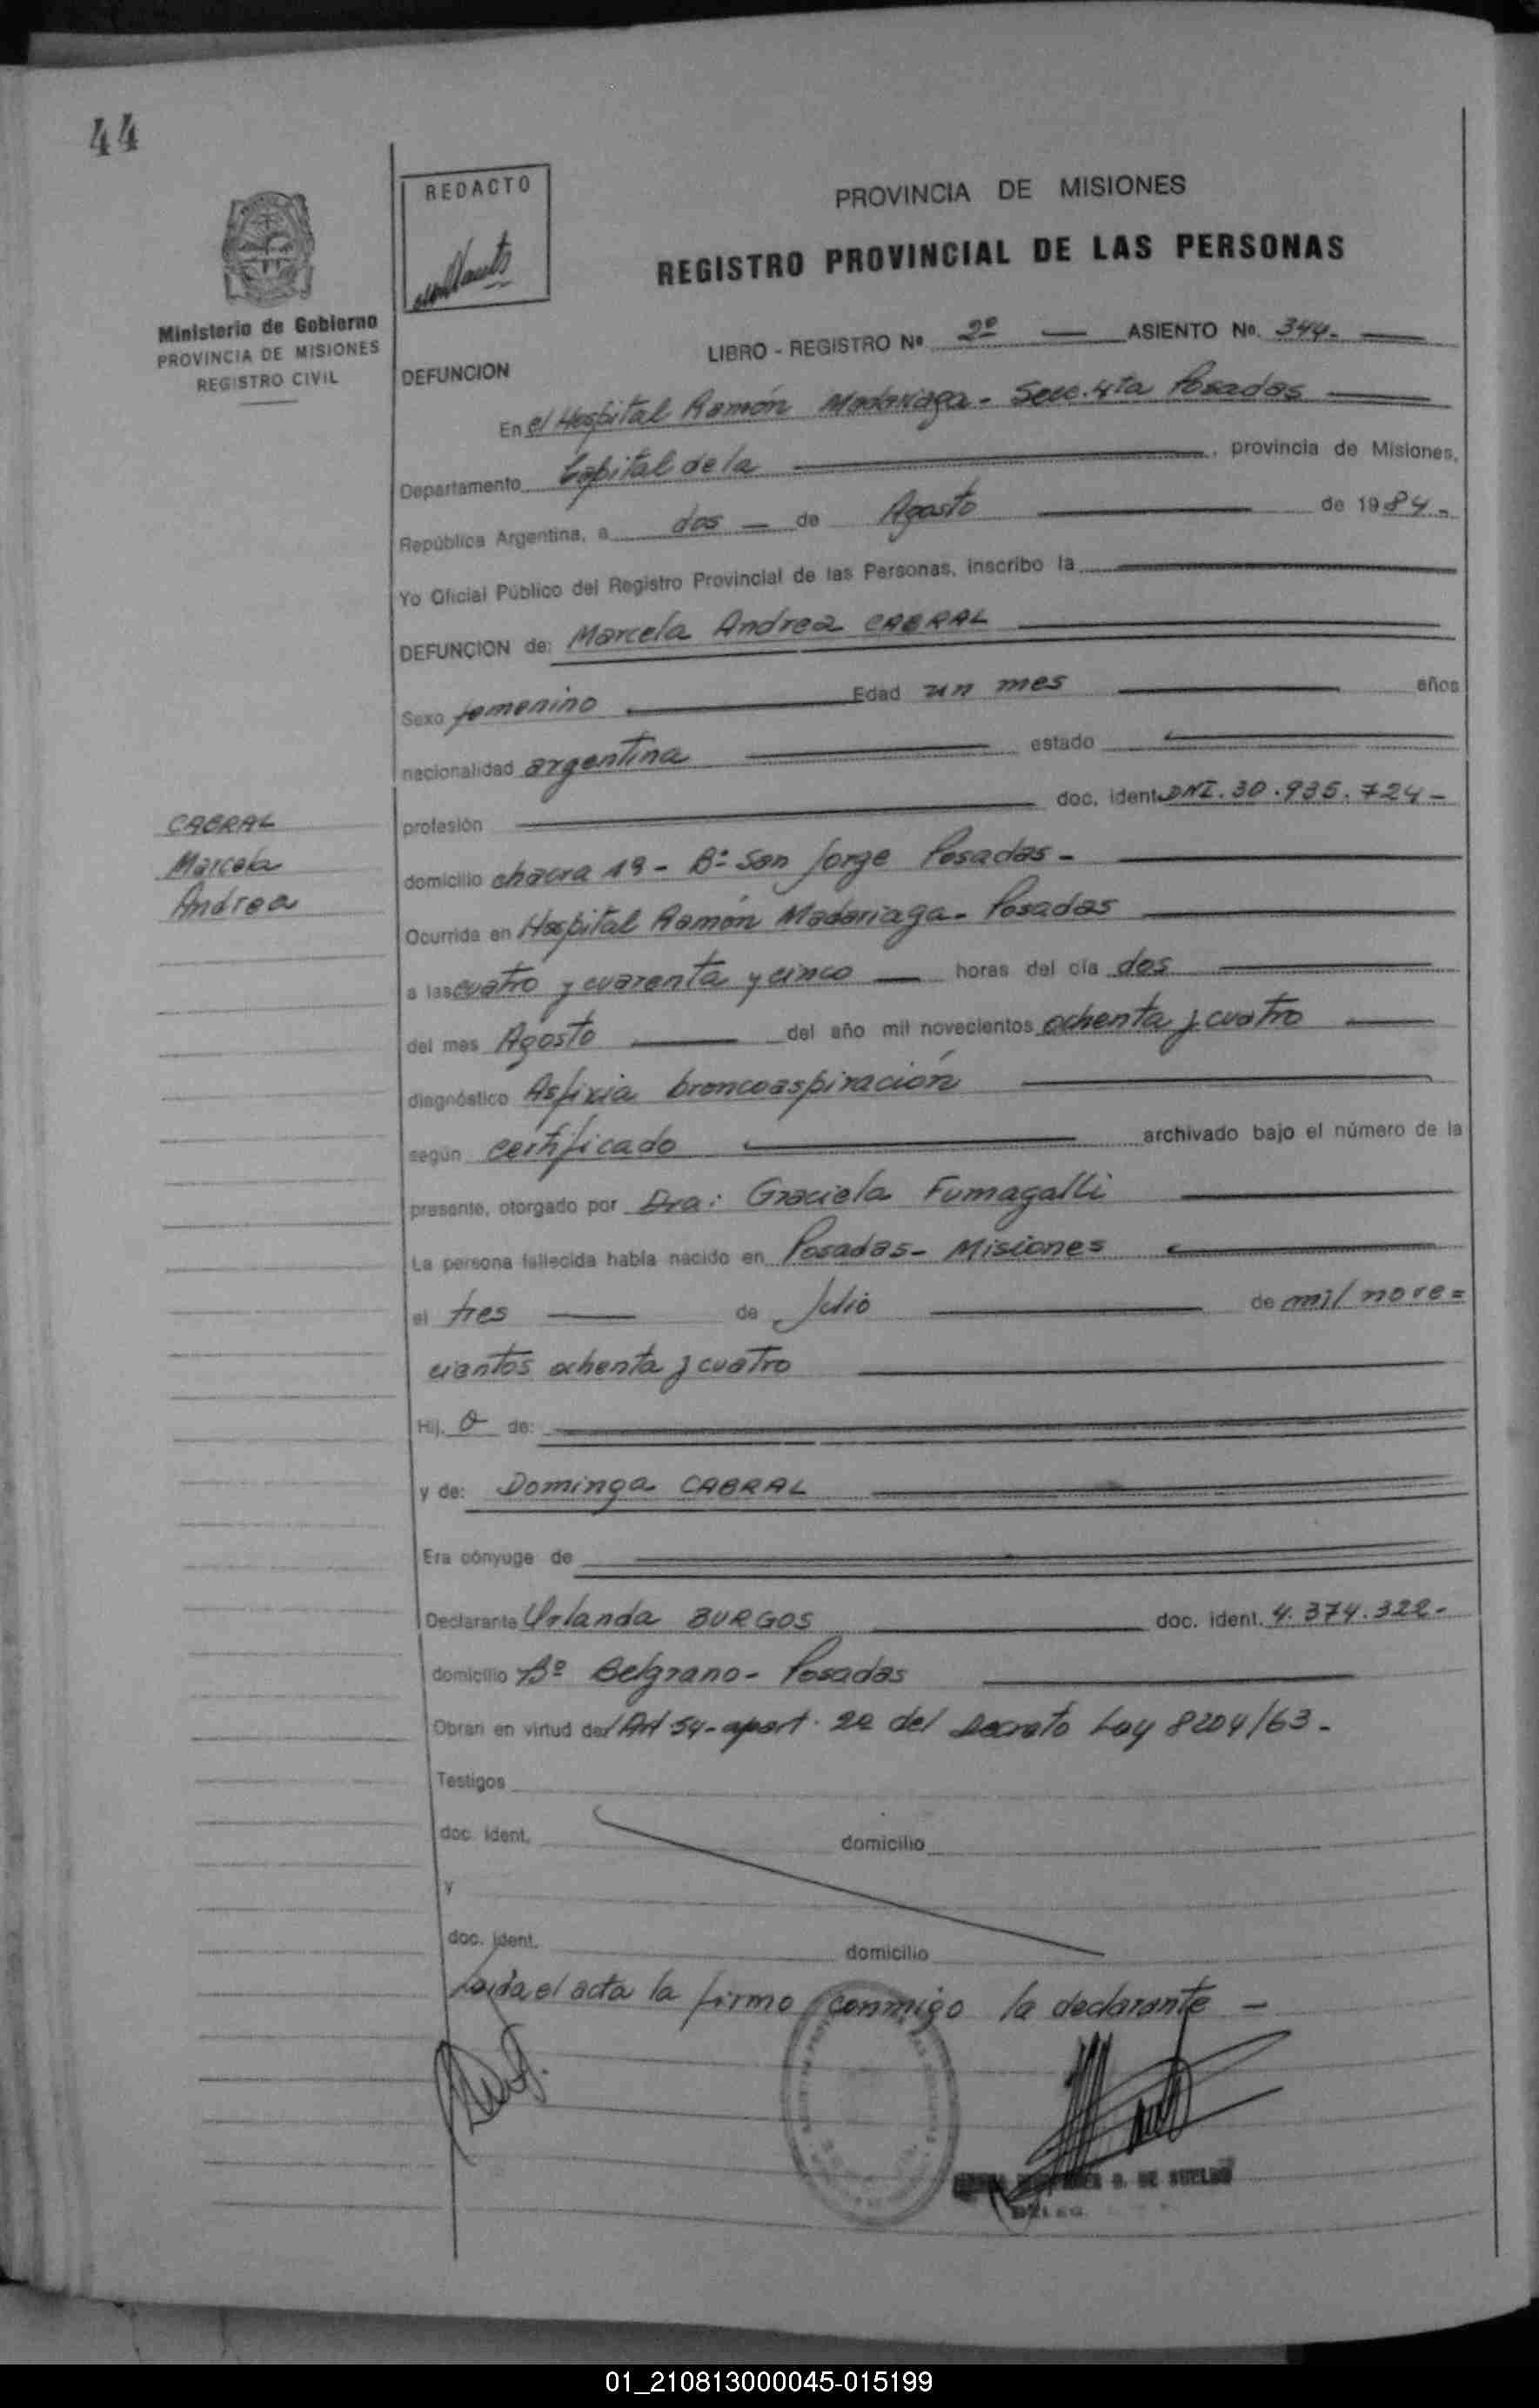 44
REDACTO
PROVINCIA DE MISIONES
REGISTRO PROVINCIAL DE LAS PERSONAS
Ministerio de Gobierno
PROVINCIA DE MISIONES
REGISTRO CIVIL
LIBRO - REGISTRO Nº 2º — ASIENTO No. 344. —
DEFUNCION
En el Hospital Ramón Madariaga - Secc. 4ta Posadas
Departamento Capital de la , provincia de Misiones,
República Argentina, a dos — de Agosto de 1984.
Yo Oficial Público del Registro Provincial de las Personas, inscribo la
DEFUNCION de: Marcela Andrea CABRAL
Sexo femenino Edad un mes años
nacionalidad argentina estado
profesión doc. ident. DNI. 30.935.724 -
CABRAL
Marcela
Andrea
domicilio chacra 19 - Bº San Jorge Posadas -
Ocurrida en Hospital Ramón Madariaga - Posadas
a las cuatro y cuarenta y cinco — horas del día dos
del mes Agosto del año mil novecientos ochenta y cuatro
diagnóstico Asfixia broncoaspiración
según certificado archivado bajo el número de la
presente, otorgado por Dra: Graciela Fumagalli
La persona fallecida había nacido en Posadas - Misiones
el tres de Julio de mil nove=
cientos ochenta y cuatro
Hij. a de:
y de: Dominga CABRAL
Era cónyuge de
Declarante Urlanda BURGOS doc. ident. 4.374.322-
domicilio Bº Belgrano - Posadas
Obran en virtud del Art 54 - apart. 2º del Decreto Ley 8204/63 -
Testigos
doc. ident. domicilio
y
doc. ident. domicilio
Leída el acta la firma conmigo la declarante -
D. DE SUELDO
01_210813000045-015199